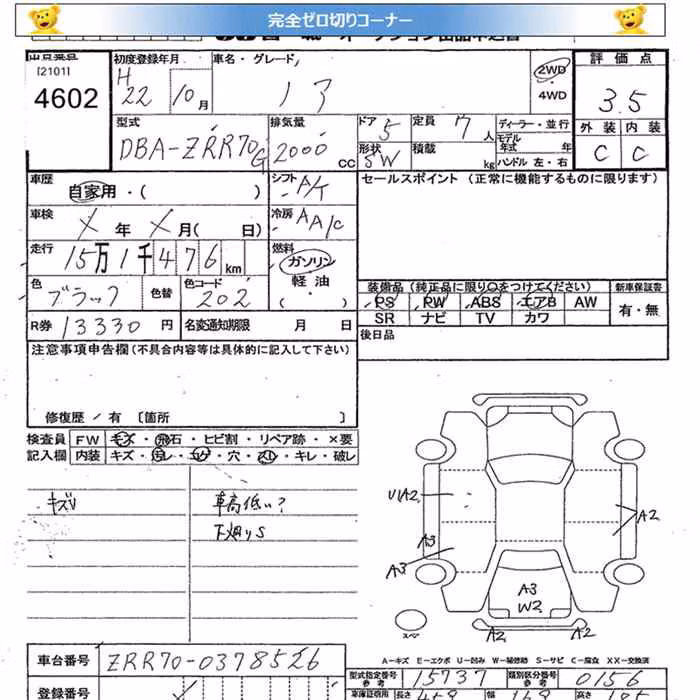 完全ゼロ切りコーナー
出品番号 [2101] 4602
初度登録年月 H 22 10月
車名・グレード ノア
2WD
4WD
評価点 3.5
外装 C 内装 C
型式 DBA-ZRR70G
排気量 2000 CC
ドア 5
形状 SW
定員 7人
積載 kg
ディーラー・並行
モデル年式 年
ハンドル 左・右
車歴 自家用・( )
シフト A/T
セールスポイント (正常に機能するものに限ります)
車検 X年 X月( 日)
冷房 AA/C
走行 15万1千476km
燃料 ガソリン
軽油
( )
色 ブラック 色替 色コード 202
装備品 (純正品に限り○をつけてください) 新車保証書
PS PW ABS エアB AW 有・無
SR ナビ TV カワ
R券 13330円 名変通知期限 月 日
後日品
注意事項申告欄 (不具合内容等は具体的に記入して下さい)
修復歴 / 有 [箇所 ]
検査員 FW キズ・飛石・ヒビ割・リペア跡・×要
記入欄 内装 キズ・・・穴・・キレ・破レ
キズV 車高低い?
下廻りS
U1A2
A2
A3
A3
A3
W2
A2 A2
スペア
A-キズ E-エクボ U-凹み W-補修跡 S-サビ C-腐食 XX-交換済
車台番号 ZRR70-0378526
型式指定番号 参考 15737 類別区分番号 参考 0156
登録番号
車庫証明用 長さ 459 幅 169 高さ 185